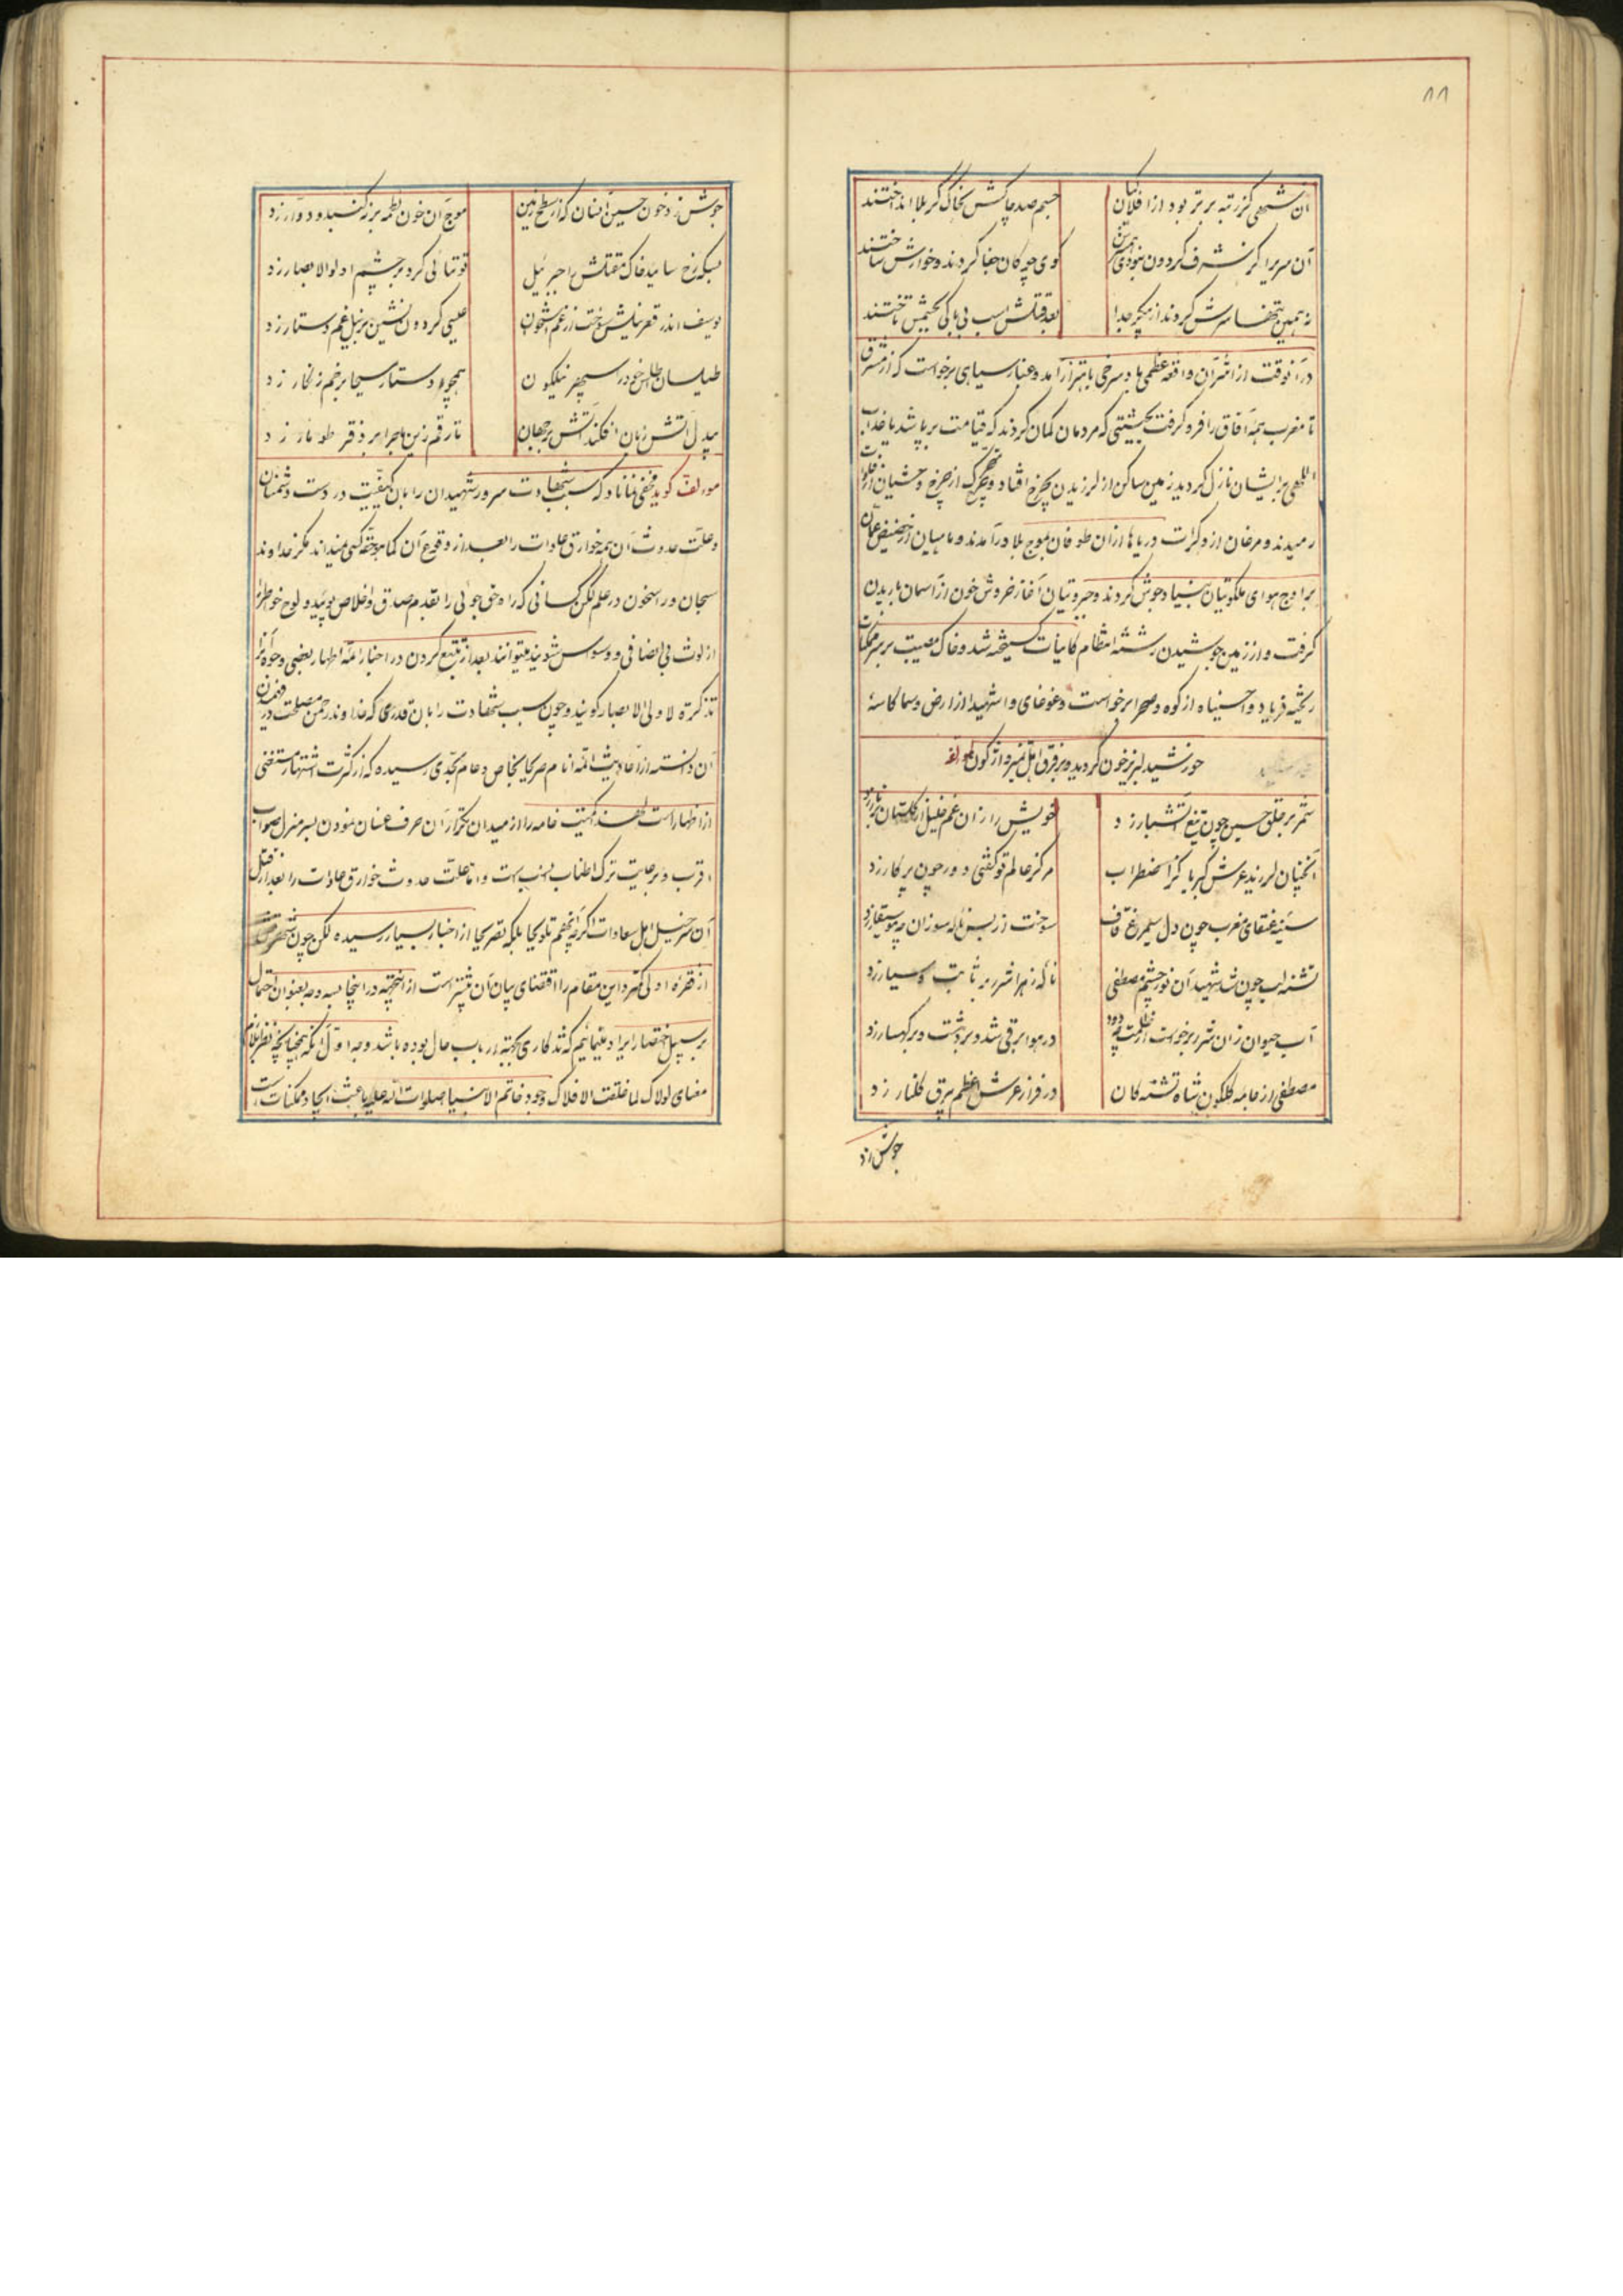 ۸۸
آن شهی کز رتبه برتر بود از افلاکیان جسم صد چاکش بخاک کربلا انداختند
آن سریرا کز شرف کردون نبودی همسرش کوی چوکان جفا کردند و خوارش ساختند
نه همین تنها سرش کردند از پیکر جدا بعد قتلش اسب بی باکی بجسمش تاختند
در آنوقت از اثر آن واقعه عظمی باد سرخی باهتزاز آمد و غبار سیاهی برخواست که از مشرق
تا مغرب همه آفاق را فرو کرفت بحیثیتی که مردمان کمان کردند که قیامت برپا شد یا عذاب
اللهی برایشان نازل کردید زمین ساکن از لرزیدن بچرخ افتاد و چرخ از وحشیان از
رمیدند و مرغان از وکرات دریاها از آن طوفان بموج بلا درآمدند و ماهیان از حضیض عمان
براوج هوای ملکوتیان بنیاد جوش کردند و جبروتیان آغاز خروش خون از آسمان باریدن
کرفت و از زمین جوشیدن رشته انتظام کاینات کسیخته شد و خاک مصیبت بر سر ممکنات
ریخته فریاد واحسیناه از کوه و صحرا برخواست و غوغای واشهیدا از ارض و سما کاسهٔ
خورشید لبریز خون کردید و بر فرق اهل تیره واژکون لمؤلفه
شمر بر حلق حسین چون تیغ آتشبار زد خویش را زان غم خلیل از کلستان بر نار زد
آنچنان لرزید عرش کبریا کز اضطراب مرکز عالم تو کفتی دور چون پرکار زد
سینه عنقای مغرب چون دل سیمرغ قاف سوخت از بس ناله سوزان چو موسیقار زد
تشنه لب چون شد شهید آن نور چشم مصطفی ناله زهرا شرر بر ثابت و سیار زد
آب حیوان زان شرر برخواست از ظلمت چو دود در هوا برقی شد و بر دشت و بر کهسار زد
مصطفی از جامه کلکون شاه تشنه کان در فراز عرش اعظم بیرق کلنار زد
جوش زد
جوش زد خون حسین آنسان که از سطح زمین موج آن خون لطمه بر نه کنبد دوار زد
بسکه رخ سائید خاک مقتلش را جبرئیل توتیائی کرد بر چشم اولوالابصار زد
یوسف اندر قعر نیلش سوخت از غم استخوان عیسی کردون نشین بر نیل غم دستار زد
طیلسان اطلس خود را سپهر نیلکون همچو دستار مسیحا بر خم زنکار زد
بیدل آتش زبان افکند آتش بر جهان تا رقم زین ماجرا بر دفتر طومار زد
مؤلف کوید مخفی نماناد که سبب شهادت سرور شهیدان را بآن کیفیت در دست دشمنان
و علت حدوث آن همه خوارق عادات را بعد از وقوع آن کما هو حقه کسی نمیداند مکر خداوند
سبحان و راسخون در علم لکن کسانی که راه حق جوئی را بقدم صدق و اخلاص پوید و لوح خواطر را
از لوث بی انصافی و وسواس شویند میتوانند بعد از تتبع کردن در اخبار ائمه اطهار بعضی وجوه آنرا
تذکرة لاولی الابصار کویند و چون سبب شهادت را بآن قدری که خداوند رحمن مصلحت در فهمیدن
آن دانسته از احادیث ائمه انام صریحا بخاص و عام بحدی رسیده که از کثرت اشتهار مستغنی
از اظهار است لهذا کمیت خامه را از میدان تکرار آن صرف عنان نمودن بسر منزل صواب
اقرب و برعایت ترک اطناب انسب است و اما علت حدوث خوارق عادات را بعد از قتل
آن سرخیل اهل سعادات اکر چه آنهم تلویحا بلکه تصریحا از اخبار بسیار رسیده لکن چون
از فقره اولی کمتر و این مقام را اقتضای بیان آن بیشتر است از آنجهته در اینجا بسه وجه بعنوان اجمال
بر سبیل اختصار ایراد مینمائیم که تذکاری بجهته ارباب حال بوده باشد وجه اول آنکه همچنانچه نظر بکلام
معنای لولاک لما خلقت الافلاک وجود خاتم الانبیا صلوات الله علیه باعث ایجاد ممکنات است